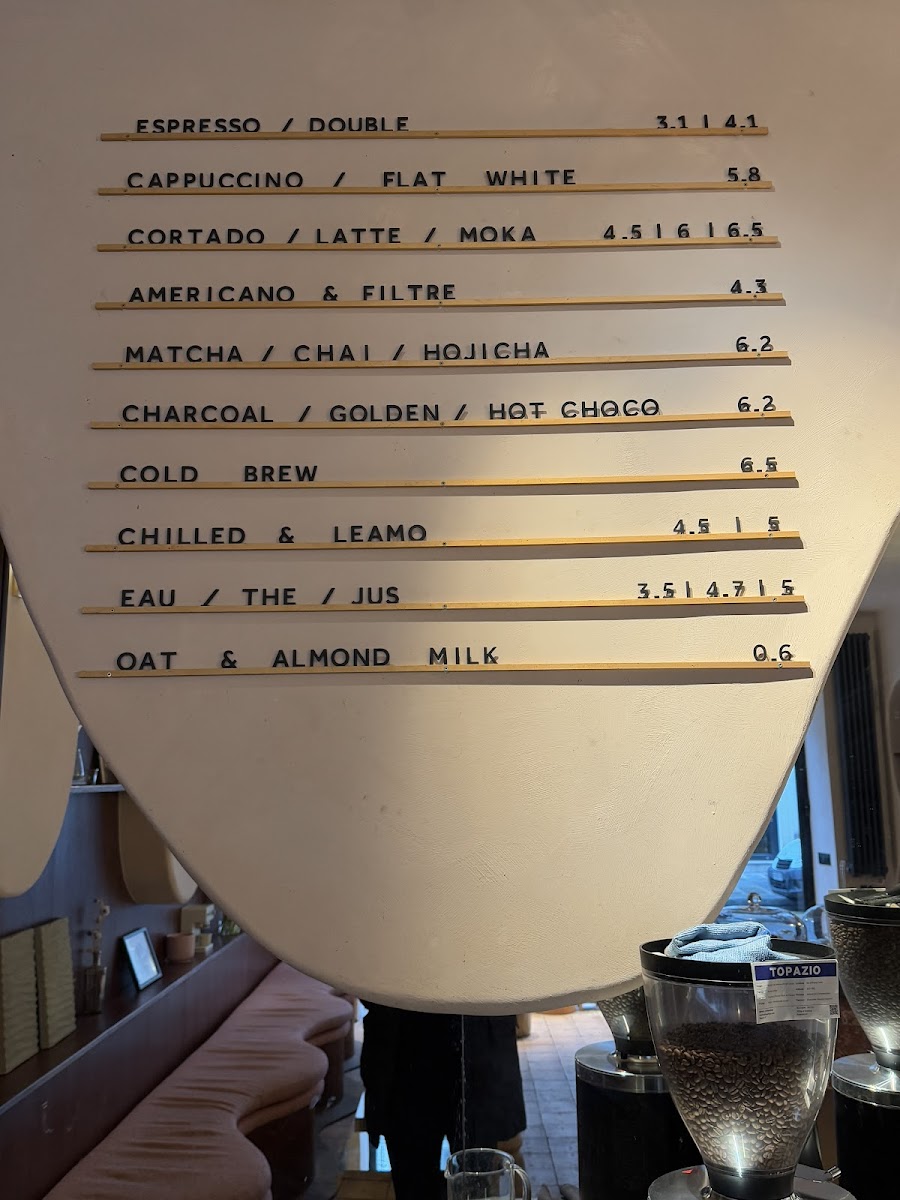 ESPRESSO / DOUBLE 3.1 | 4.1
CAPPUCCINO / FLAT WHITE 5.8
CORTADO / LATTE / MOKA 4.5 | 6 | 6.5
AMERICANO & FILTRE 4.3
MATCHA / CHAI / HOJICHA 6.2
CHARCOAL / GOLDEN / HOT CHOCO 6.2
COLD BREW 6.5
CHILLED & LEAMO 4.5 | 5
EAU / THE / JUS 3.5 | 4.7 | 5
OAT & ALMOND MILK 0.6
TOPAZIO